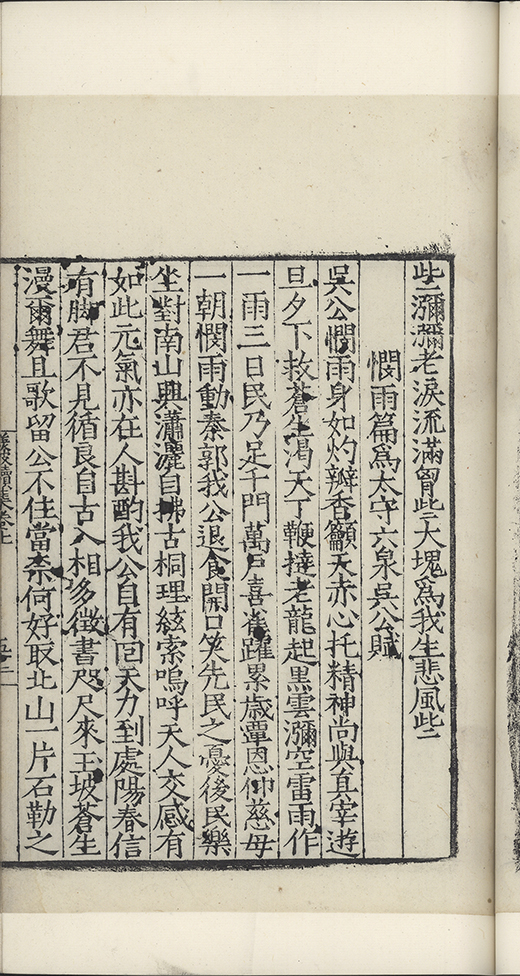 些瀰瀰老淚流滿胷些大塊爲我生悲風些
憫雨篇爲太守六泉吳公賦
吳公憫雨身如灼瓣香籲天赤心托精神尚與真宰遊
旦夕下救蒼生渴天丁鞭撻老龍起黑雲瀰空雷雨作
一雨三日民乃足千門萬戶喜雀躍累歲覃恩仰慈母
一朝憫雨動秦郭我公退食開口笑先民之憂後民樂
坐對南山興瀟灑自拂古桐理絃索嗚呼天人交感有
如此元氣亦在人斟酌我公自有回天力到處陽春信
有脚君不見循良自古入相多徵書咫尺來玉坡蒼生
漫爾舞且歌留公不住當柰何好取北山一片石勒之